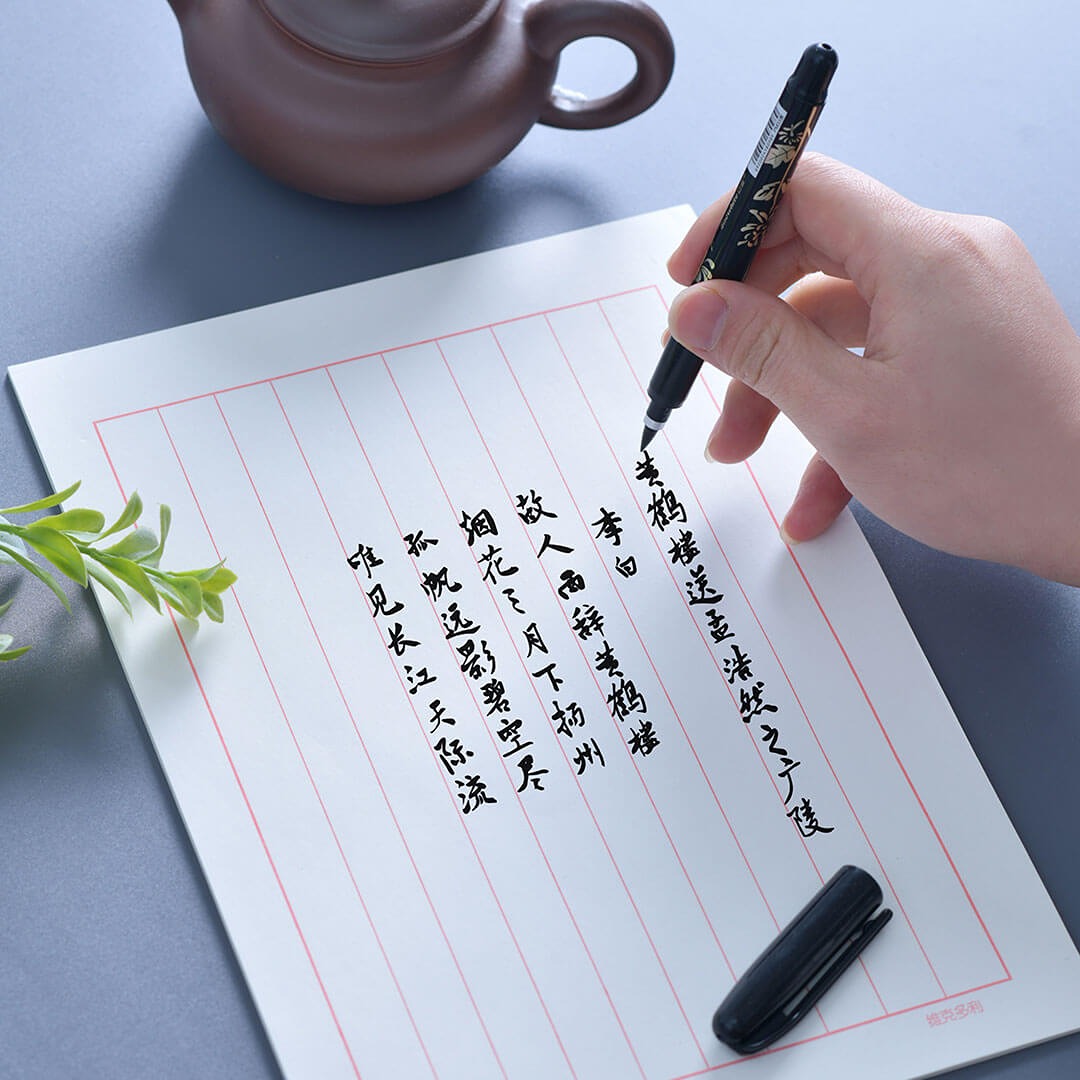 黄鹤楼送孟浩然之广陵
李白
故人西辞黄鹤楼
烟花三月下扬州
孤帆远影碧空尽
唯见长江天际流
维克多利